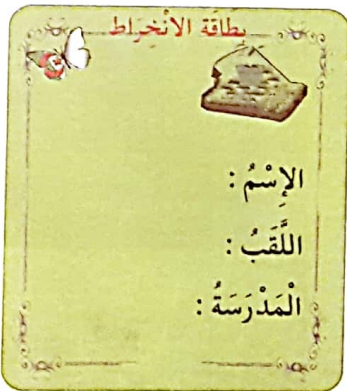 بطاقة الانخراط
الإِسْمُ :
اللَّقَبُ :
الْمَدْرَسَةُ :